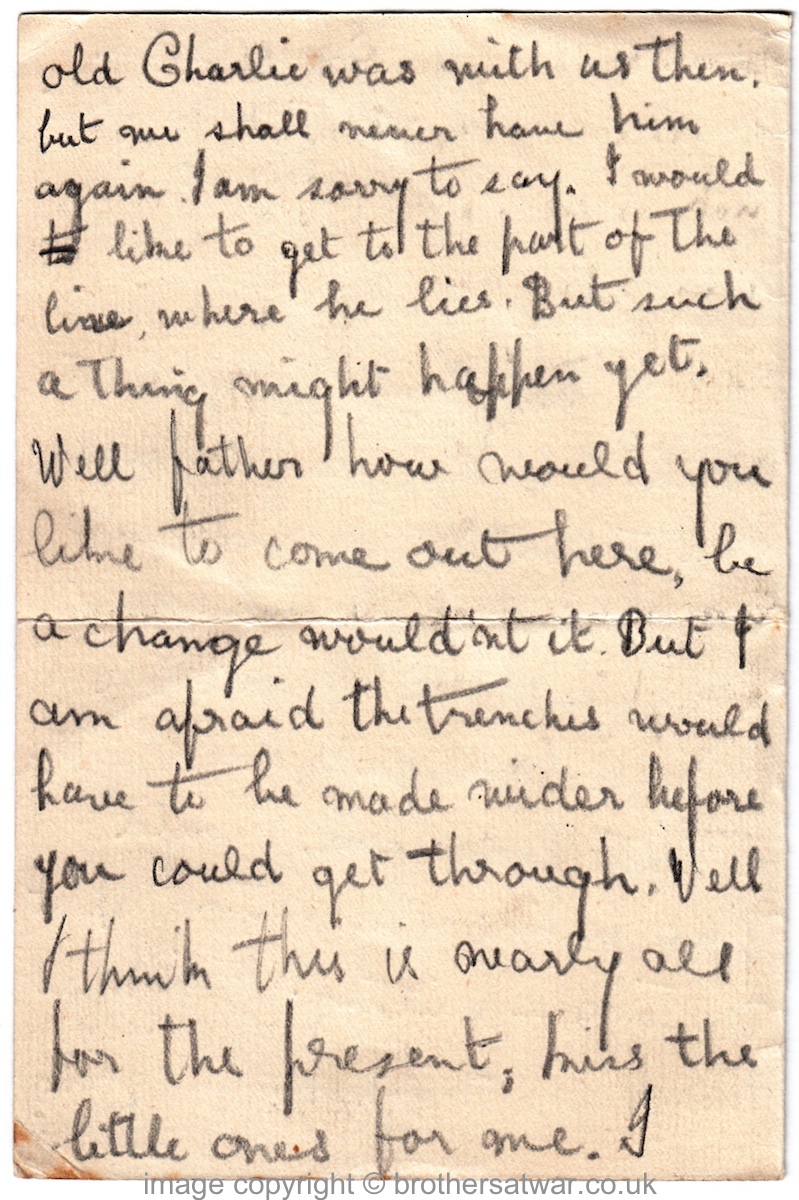 old Charlie was with us then.
but we shall never have him
again. I am sorry to say. I would
to like to get to the part of the
line, where he lies. But such
a thing might happen yet.
Well father how would you
like to come out here, be
a change would'nt it. But I
am afraid the trenches would
have to be made wider before
you could get through. Well
I think this is nearly all
for the present, kiss the
little ones for me. I
image copyright © brothersatwar.co.uk